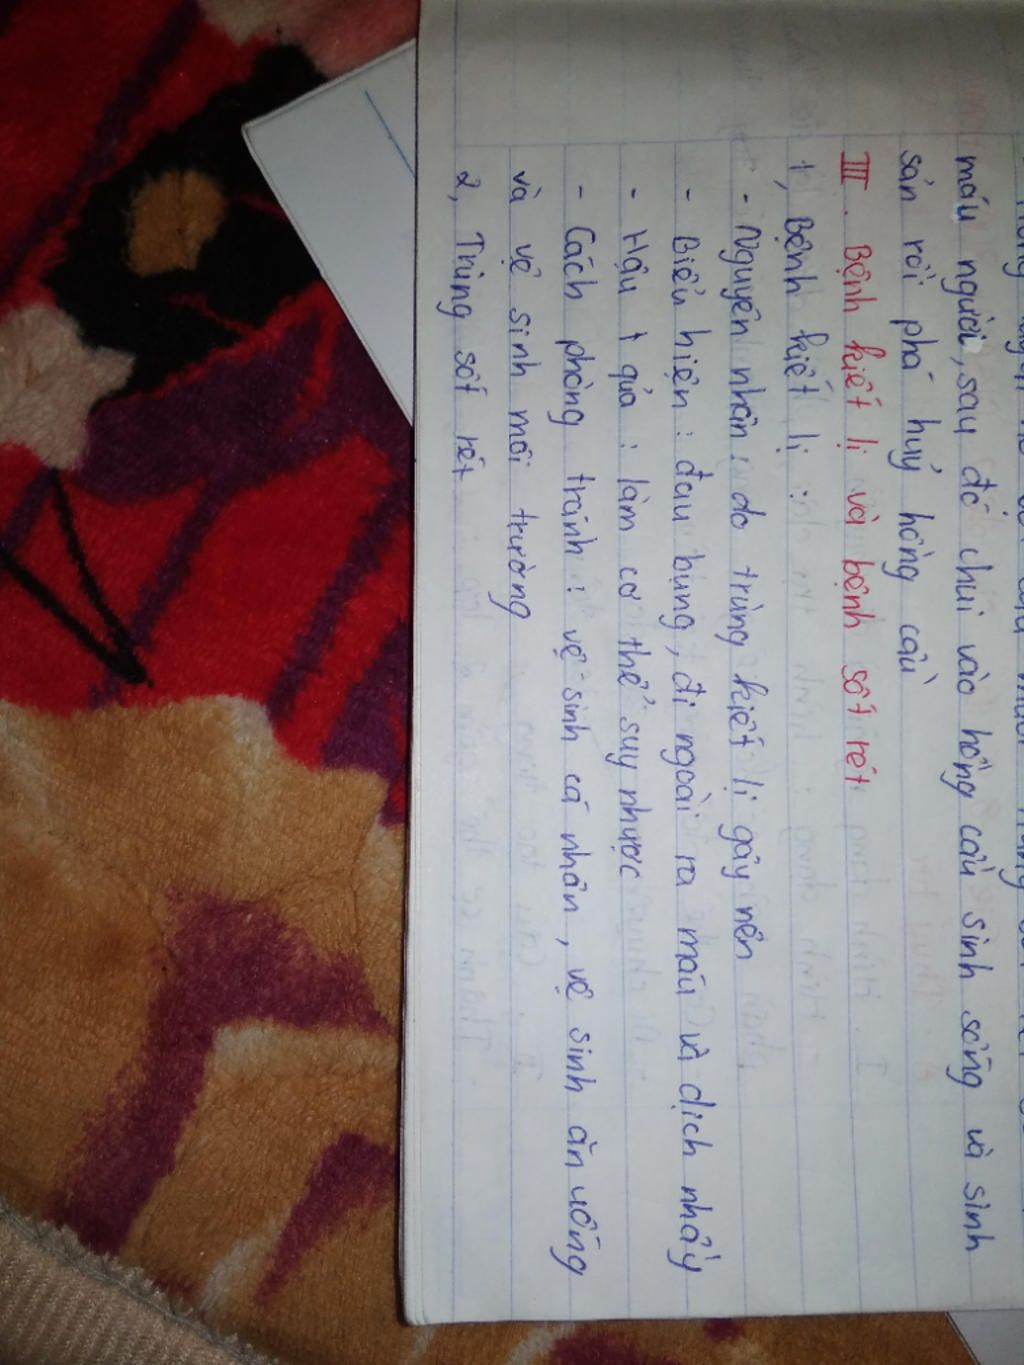 máu người, sau đó chui vào hồng cầu sinh sống và sinh
sản rồi phá huỷ hồng cầu
III. Bệnh kiết lị và bệnh sốt rét
1, Bệnh kiết lị :
- Nguyên nhân : do trùng kiết lị gây nên
- Biểu hiện : đau bụng, đi ngoài ra máu và dịch nhầy
- Hậu quả : làm cơ thể suy nhược
- Cách phòng tránh : vệ sinh cá nhân, vệ sinh ăn uống
và vệ sinh môi trường
2, Trùng sốt rét